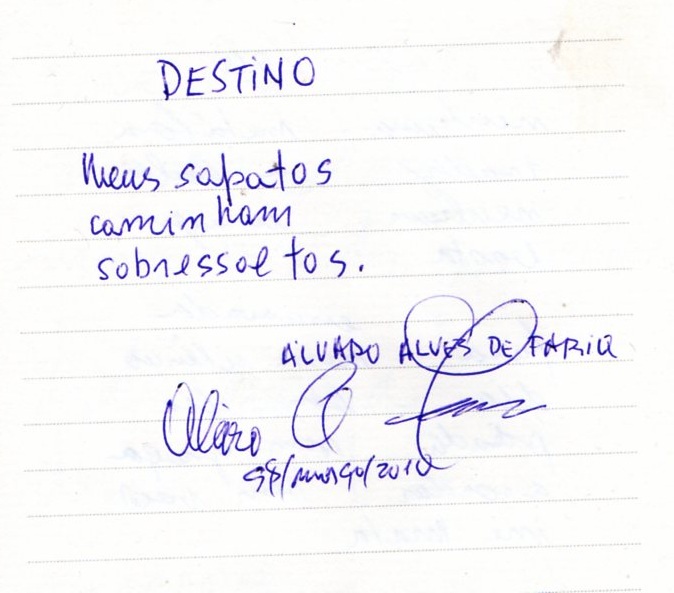 DESTINO
Meus sapatos
caminham
sobressaltos.
ÁLVARO ALVES DE FARIA
Álvaro A
/março/2010